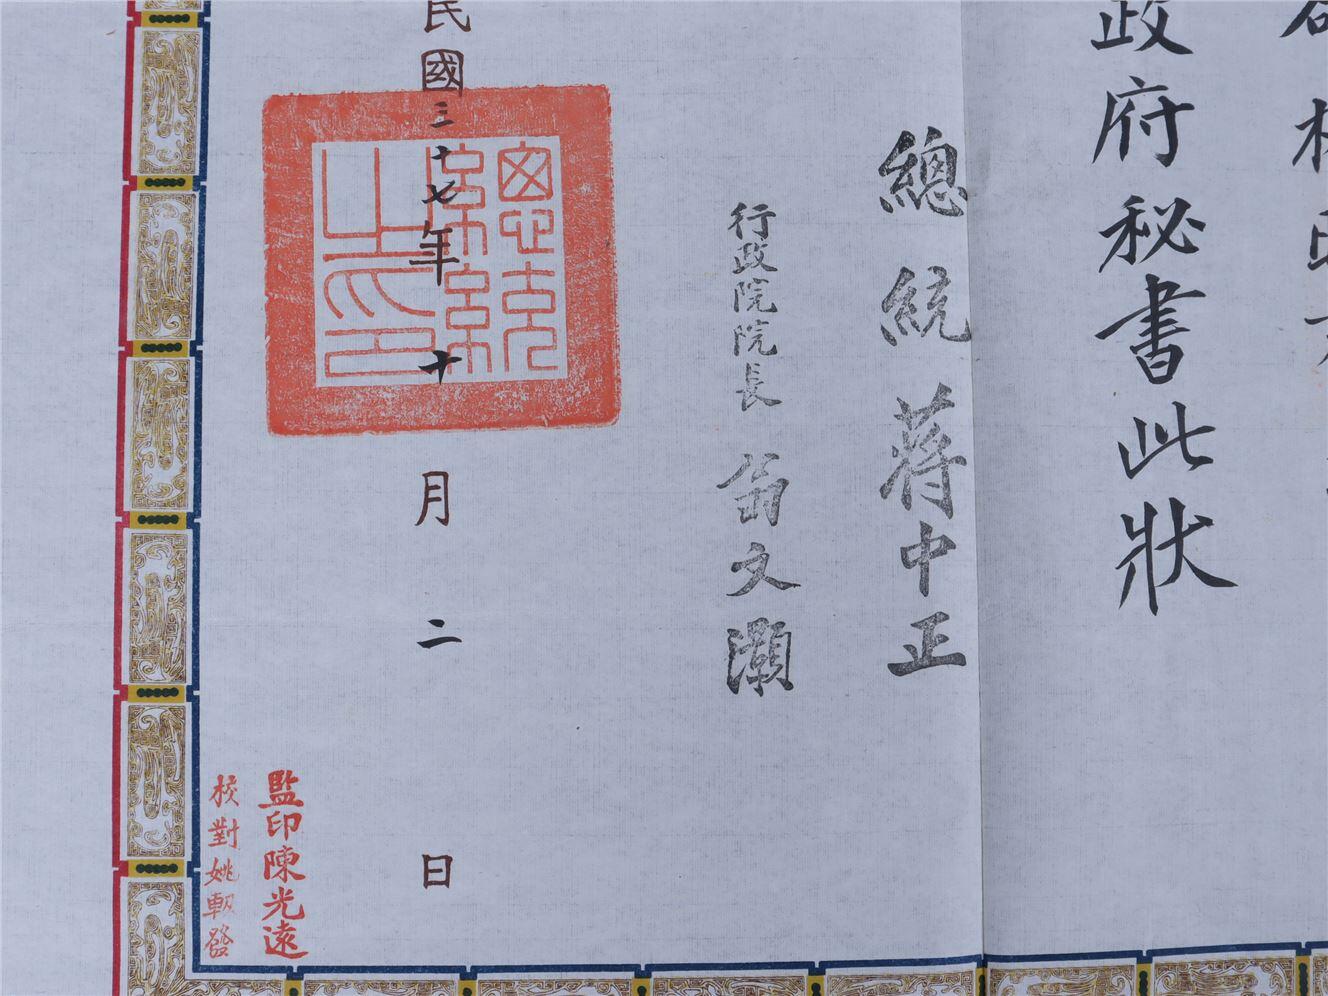 政府秘書此狀
總統蔣中正
行政院院長翁文灝
民國三十七年十月二日
總統之印
監印陳光遠
校對姚軔發